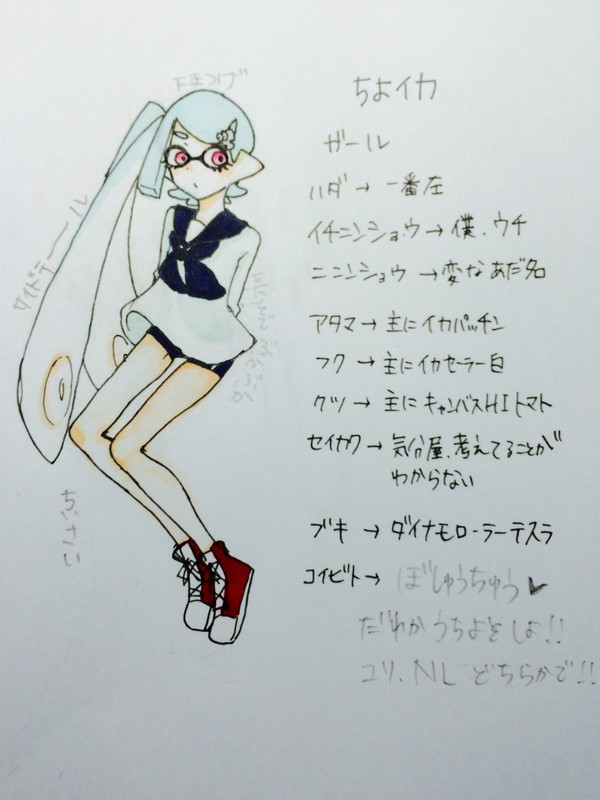 ちよイカ
下まつげ
ガール
ハダ→ 一番左
イチニンショウ→ 僕、ウチ
ニニンショウ →変なあだ名
サイドテール
アタマ→ 主にイカパッチン
フク → 主にイカセーラー白
クツ → 主にキャンバスHIトマト
セイカク→ 気分屋、考えてることが
わからない
ちいさい
ブキ → ダイナモローラーテスラ
コイビト→ ぼしゅうちゅう
しよ!!
ユリ、NL どちらかで!!